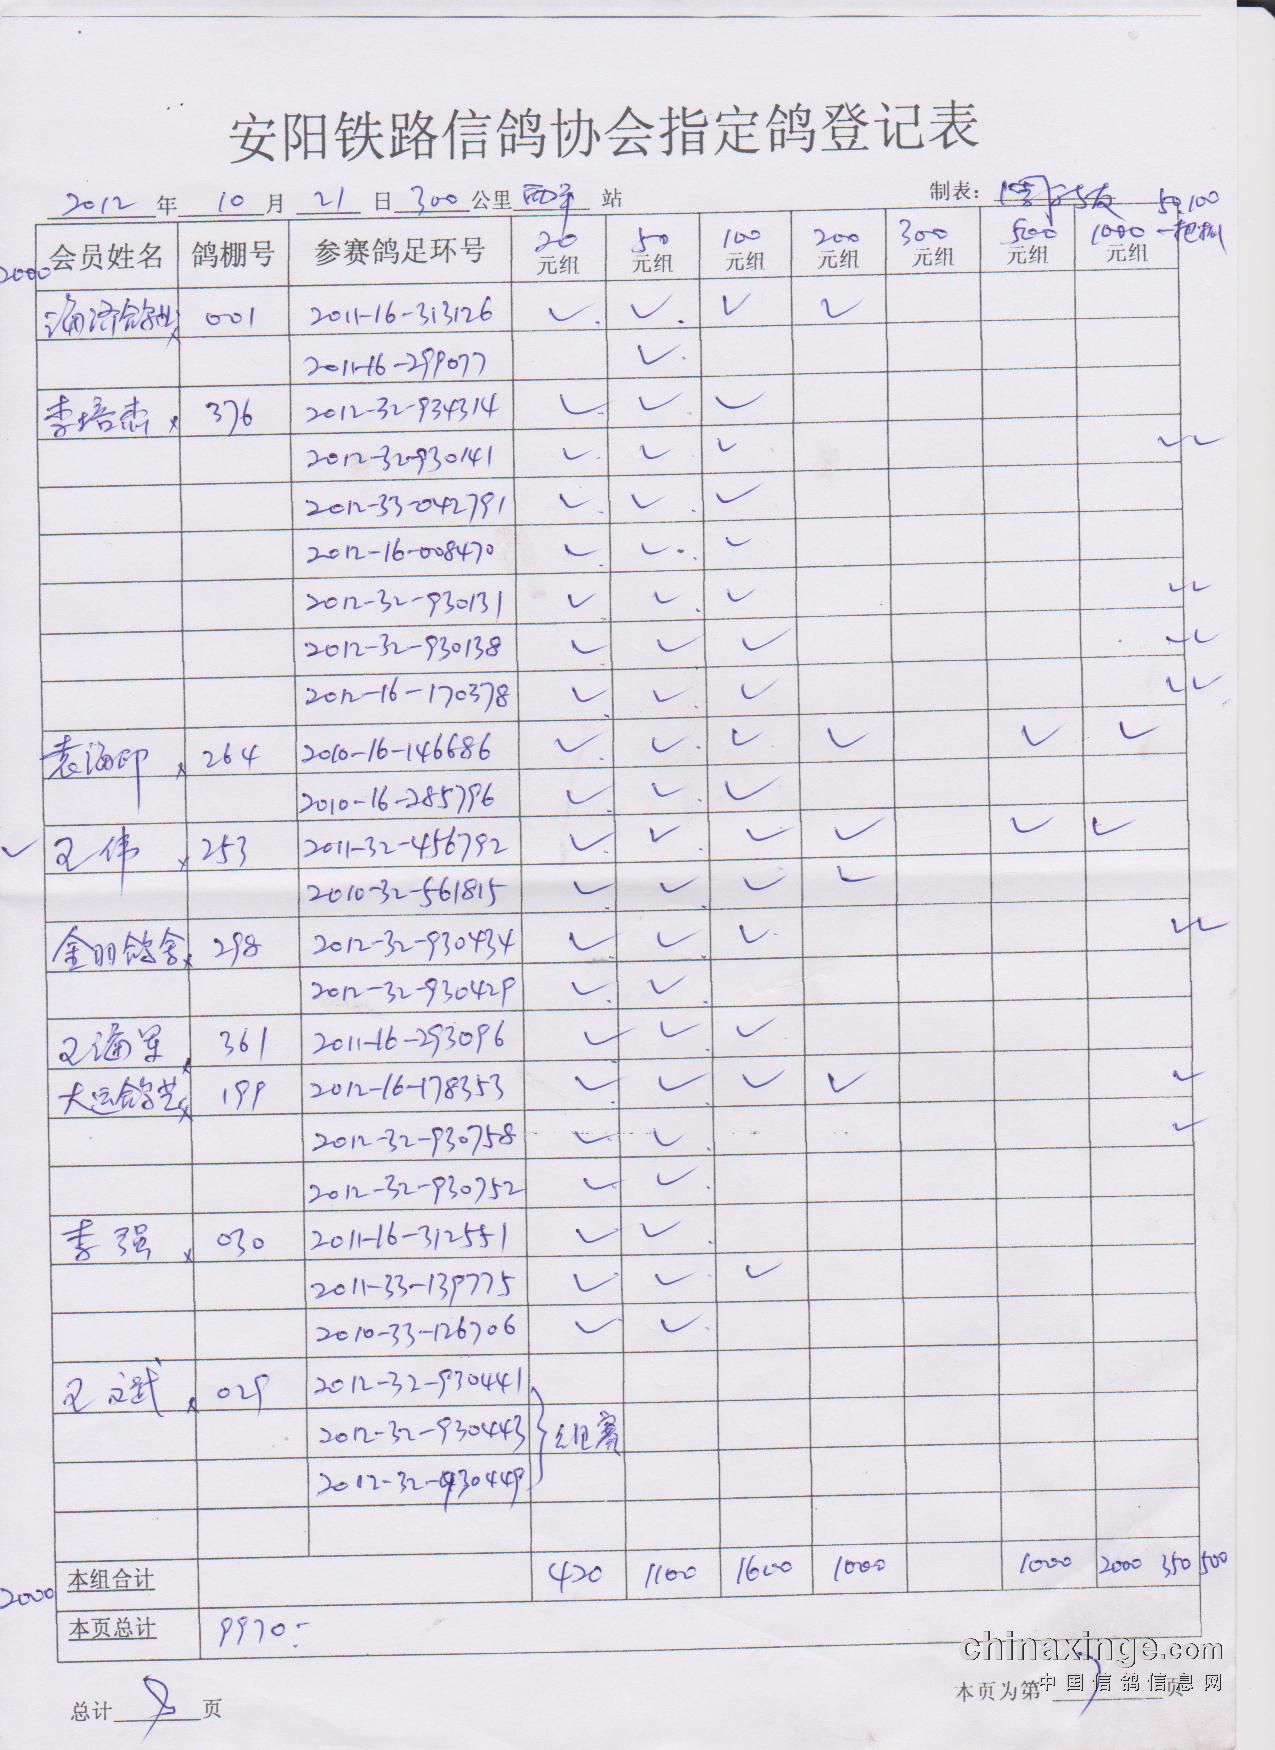 安阳铁路信鸽协会指定鸽登记表
2012 年 10 月 21 日 300 公里 西平 站 制表:
50 100
会员姓名 鸽棚号 参赛鸽足环号 20元组 50元组 100元组 200元组 300元组 500元组 1000元组 一把抓
2000
001 2011-16-313126 ✓ ✓ ✓ ✓
2011-16-299077 ✓
李培杰 376 2012-32-934314 ✓ ✓ ✓
2012-32-930141 ✓ ✓ ✓ ✓✓
2012-33-042791 ✓ ✓ ✓
2012-16-008470 ✓ ✓ ✓
2012-32-930131 ✓ ✓ ✓ ✓✓
2012-32-930138 ✓ ✓ ✓ ✓✓
2012-16-170378 ✓ ✓ ✓ ✓✓
袁海印 264 2010-16-146686 ✓ ✓ ✓ ✓ ✓ ✓
2010-16-285796 ✓ ✓ ✓
✓ 王伟 253 2011-32-456792 ✓ ✓ ✓ ✓ ✓ ✓
2010-32-561815 ✓ ✓ ✓ ✓
金羽鸽舍 298 2012-32-930434 ✓ ✓ ✓ ✓✓
2012-32-930429 ✓ ✓
王海军 361 2011-16-293096 ✓ ✓ ✓
大运鸽 199 2012-16-178353 ✓ ✓ ✓ ✓ ✓
2012-32-930758 ✓ ✓ ✓
2012-32-930752 ✓ ✓
李强 030 2011-16-312551 ✓ ✓
2011-33-139775 ✓ ✓ ✓
2010-33-126706 ✓ ✓
王文武 029 2012-32-930441
2012-32-930443 组赛
2012-32-930449
本组合计 420 1100 1600 1000 1000 2000 350 500
2000
本页总计 9970.-
chinaxinge.com
中国信鸽信息网
总计 8 页 本页为第 页